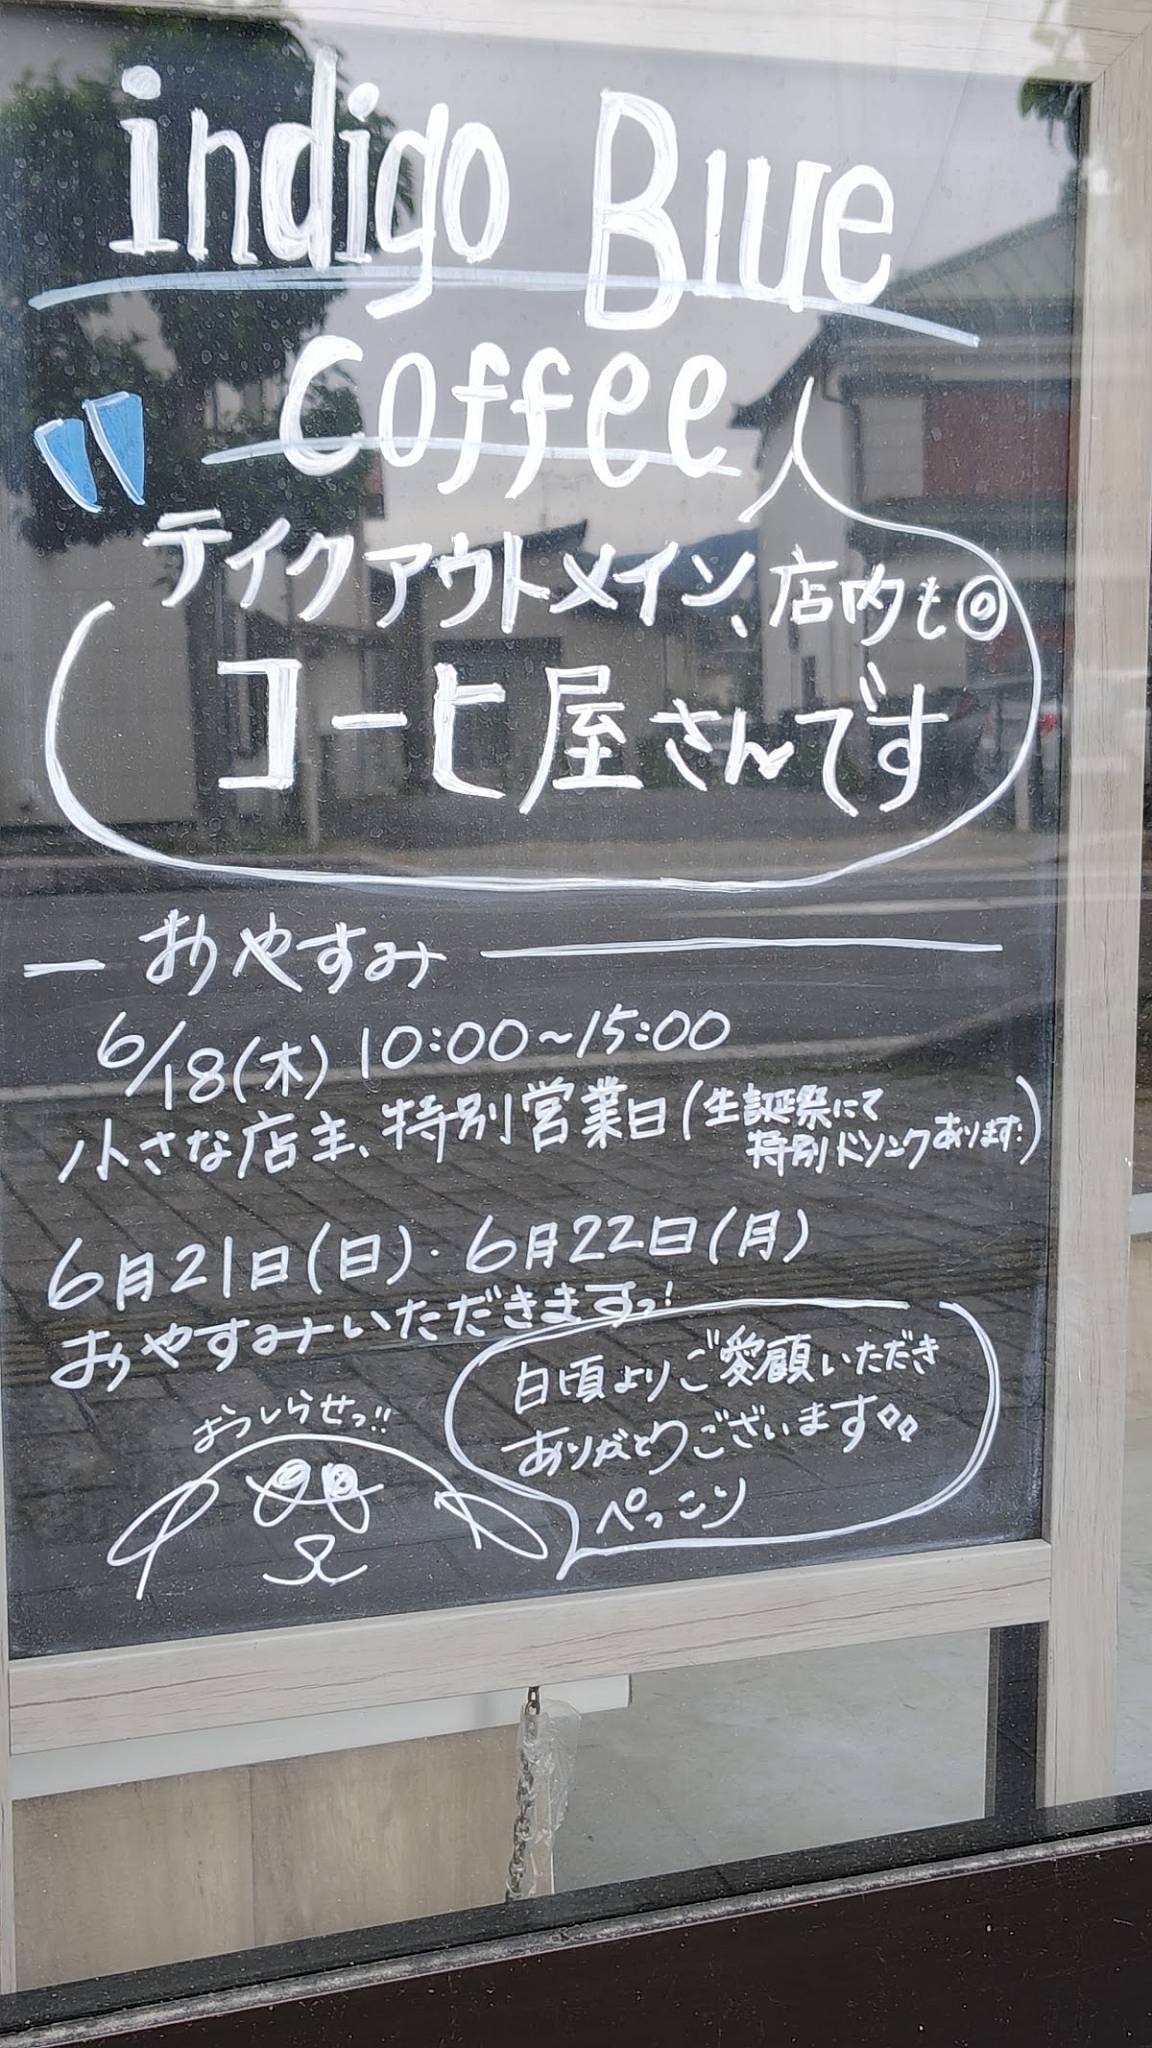 indigo Blue
coffee
テイクアウトメイン、店内も◎
コーヒ屋さんです
おやすみ
6/18(木) 10:00~15:00
小さな店主、特別営業日(生誕祭にて
特別ドリンクあります:)
6月21日(日)・6月22日(月)
おやすみいただきますっ!
おっしらせっ!!
日頃よりご愛顧いただき
ありがとうございます
ぺっこり